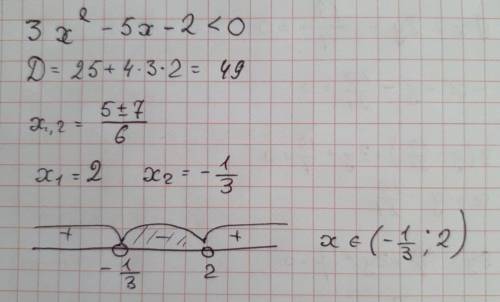 3x² - 5x - 2 < 0
D = 25 + 4·3·2 = 49
x₁,₂ = (5 ± 7)/6
x₁ = 2 x₂ = -1/3
+ - +
-1/3 2 x ∈ (-1/3; 2)